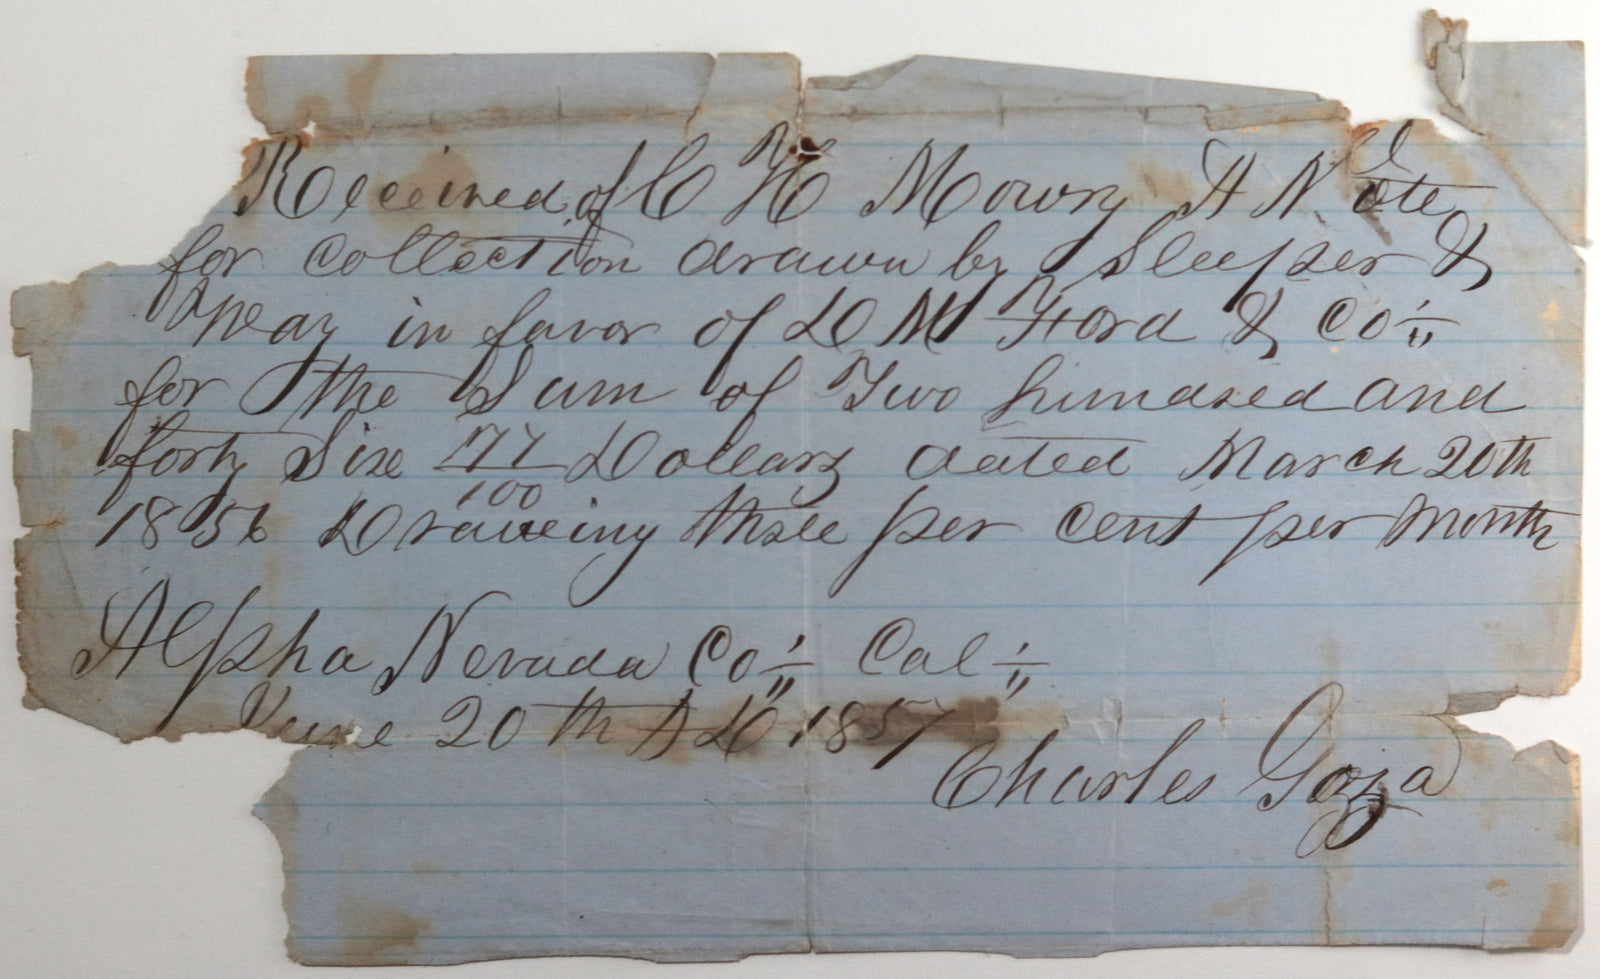 Received of C H Mowry A Note
for collection drawn by Sleeper &
Way in favor of D M Ford & Co
for the Sum of Two hundred and
forty Six 77/100 Dollars dated March 20th
1856 Draweing three per cent per Month
Alpha Nevada Co Cal
June 20th A D 1857
Charles Goza